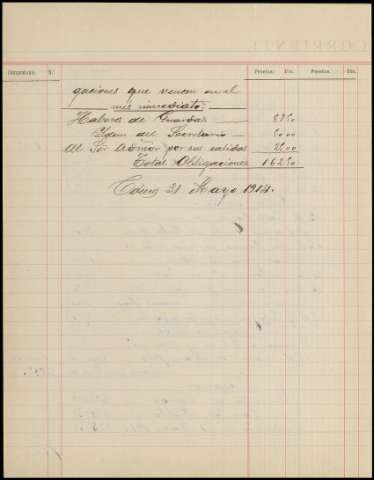 Pesetas. Cts. Pesetas. Cts.
gaciones que vencen en el
mes inmediato.
Haberes de Guardas 87 50
Idem del Secretario 50 00
Al Sor Admor por sus salidas 25 00
Total Obligaciones 162 50
31 Mayo 1914.